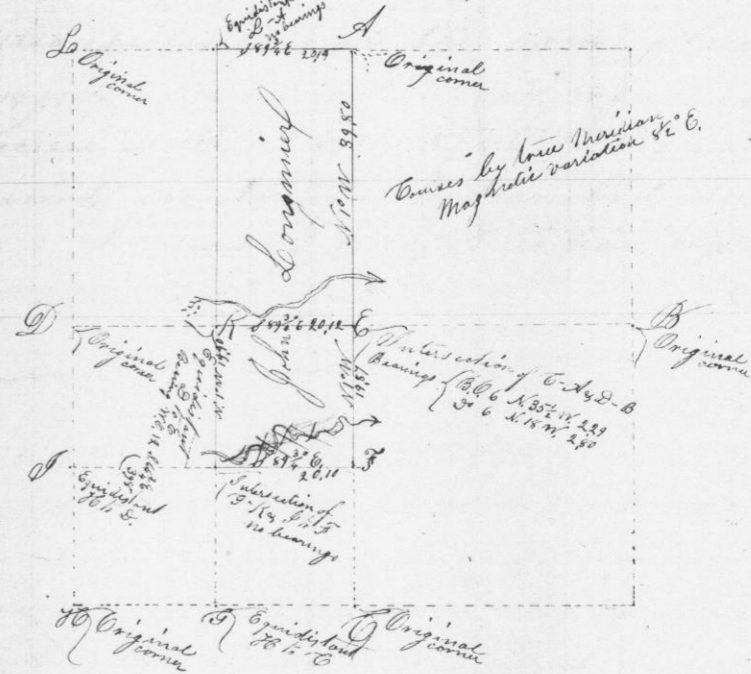 Equidistant
L-A
no bearings
S 89¾ E 20,19
A
L
Original
corner
Original
corner
N1°W 39,80
John Longinier
Courses by true Meridian
Magnetic variation 8½° E.
D
Original
corner
K
S 89¾° E 20,12
E
B
Original
corner
Intersection of C-A & D-B
Bearings
B.O. 6 N. 35½ W. 229
Do 6 N. 18 W. 280
Equidistant
D to E
N1°W
19,97
I
Equidistant
H to D.
S 89¾° E.
20,10
F
Intersection of
G-K & I to F
no bearings
H
Original
corner
G
Equidistant
H to C
C
Original
corner